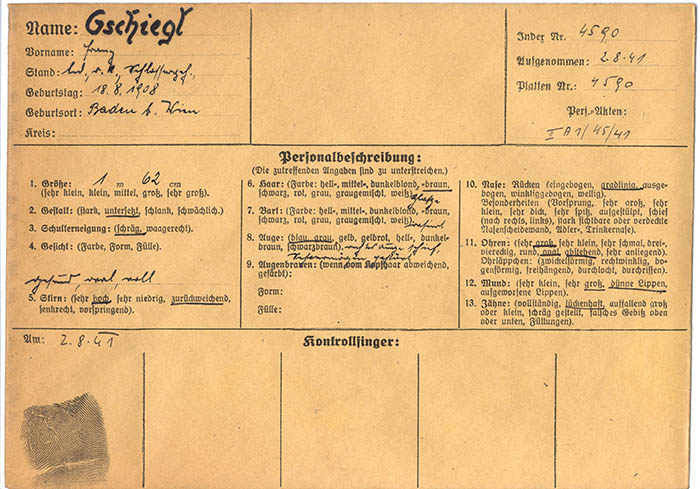 Name: Gschiegl
Vorname: Franz
Stand: led., r. k., Schlosserges.,
Geburtstag: 18.8.1908
Geburtsort: Baden b. Wien
Kreis:
Index Nr. 4590
Aufgenommen: 2.8.41
Platten Nr.: 4590
Pers.-Akten:
II A1/45/41
Personalbeschreibung:
(Die zutreffenden Angaben sind zu unterstreichen.)
1. Größe: 1 m 62 cm
(sehr klein, klein, mittel, groß, sehr groß).
2. Gestalt: (stark, untersetzt, schlank, schwächlich.)
3. Schulterneigung: (schräg, waagerecht).
4. Gesicht: (Farbe, Form, Fülle).
gesund, oval, voll
5. Stirn: (sehr hoch, sehr niedrig, zurückweichend,
senkrecht, vorspringend).
6. Haar: (Farbe: hell-, mittel-, dunkelblond, -braun,
schwarz, rot, grau, graugemischt, weiß). Glatze
7. Bart: (Farbe: hell-, mittel-, dunkelblond, -braun,
schwarz, rot, grau, graugemischt, weiß). rasiert
8. Auge: (blau, grau, gelb, gelbrot, hell-, dunkel-
braun, schwarzbraun).
9. Augenbrauen: (wenn vom Kopfhaar abweichend,
gefärbt):
Form:
Fülle:
10. Nase: Rücken (eingebogen, gradlinig, ausge-
bogen, winkliggebogen, wellig).
Besonderheiten (Vorsprung, sehr groß, sehr
klein, sehr dick, sehr spitz, aufgestülpt, schief
(nach rechts, links), stark sichtbare oder verdeckte
Nasenscheidewand, Adler-, Trinkernase).
11. Ohren: (sehr groß, sehr klein, sehr schmal, drei-,
viereckig, rund, oval, abstehend, sehr anliegend).
Ohrläppchen: (zwickelförmig, rechtwinklig, bo-
genförmig, freihängend, durchlocht, durchriffen).
12. Mund: (sehr klein, sehr groß, dünne Lippen,
aufgeworfene Lippen).
13. Zähne: (vollständig, lückenhaft, auffallend groß
oder klein, schräg gestellt, falsches Gebiß oben
oder unten, Füllungen).
Am: 2.8.41
Kontrollfinger: